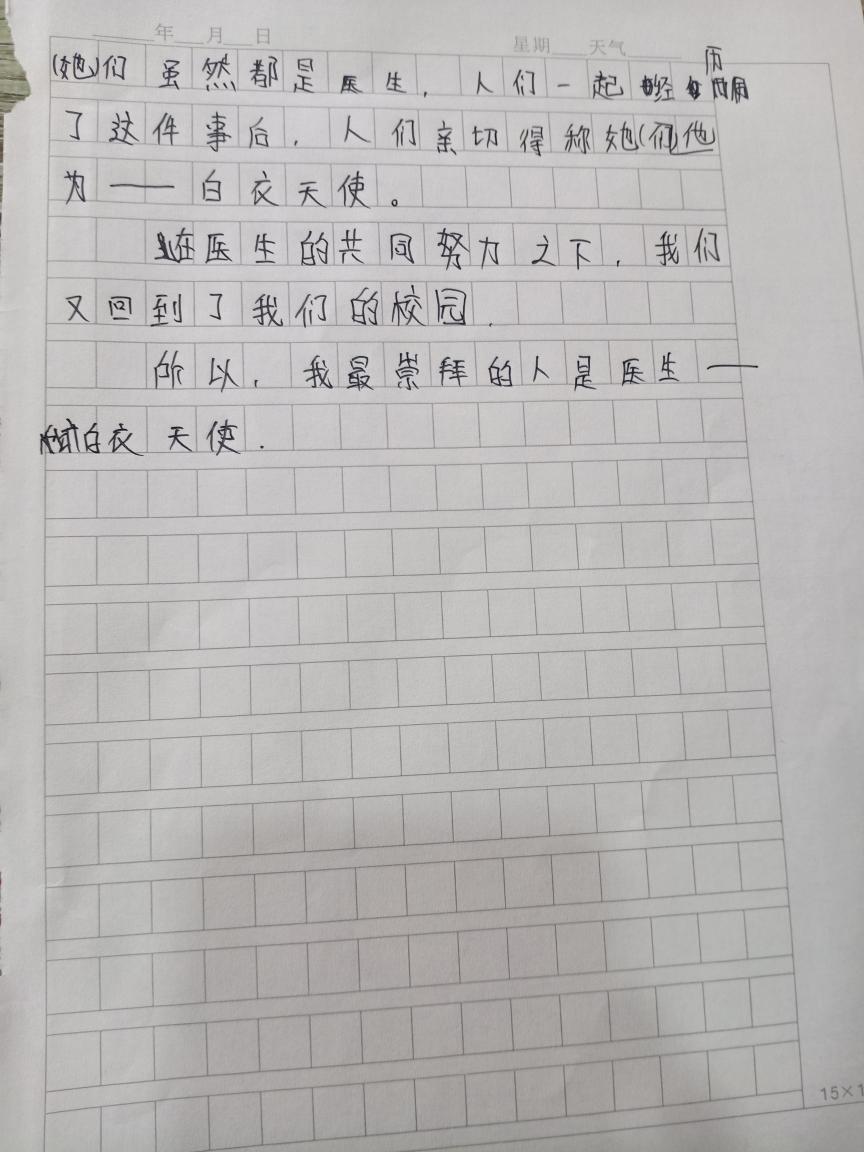 年 月 日 星期 天气
(她)们虽然都是医生，人们一起经历
了这件事后，人们亲切得称她(们)他
为——白衣天使。
在医生的共同努力之下，我们
又回到了我们的校园.
所以，我最崇拜的人是医生——
白衣天使.
15×1